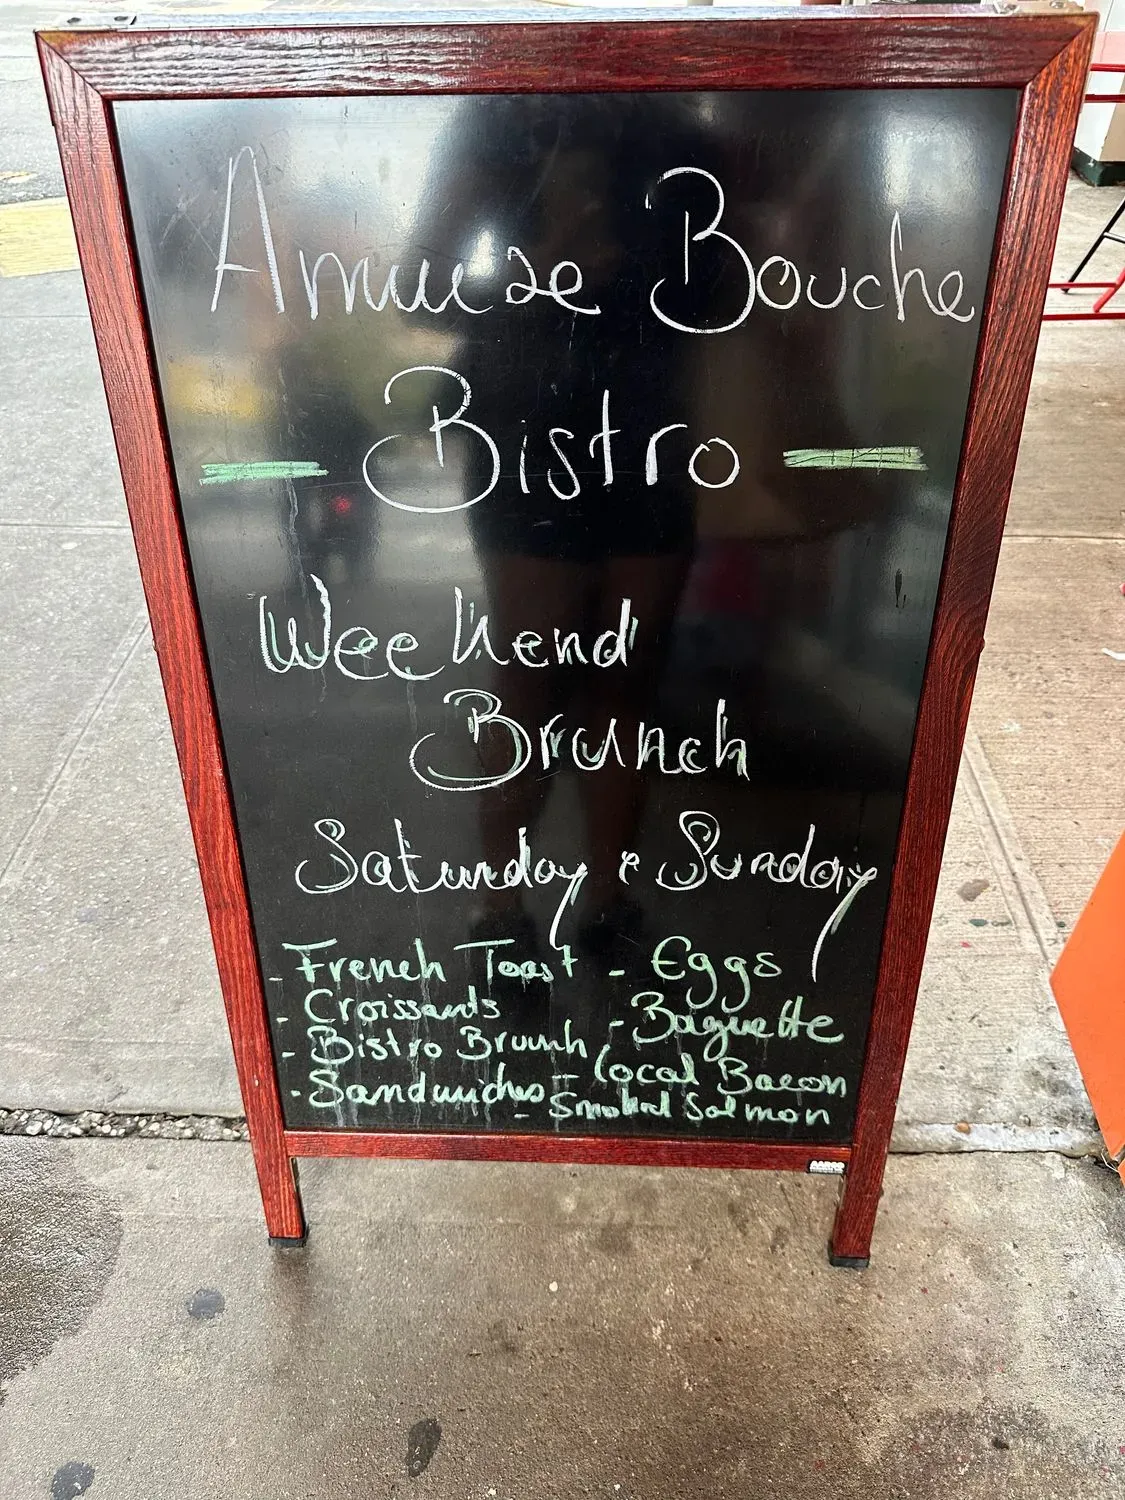 Amuse Bouche
Bistro
Weekend
Brunch
Saturday & Sunday
- French Toast
- Croissants
- Bistro Brunch
- Sandwiches
- Eggs
- Baguette
- Local Bacon
- Smoked Salmon